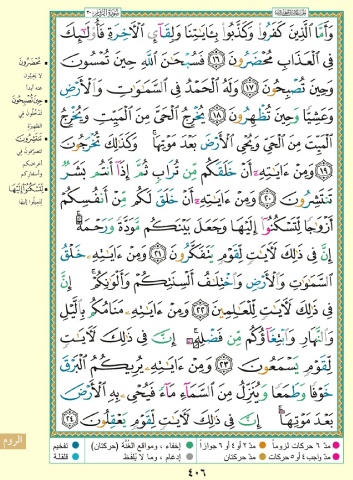 سورة الروم ٣٠
وَأَمَّا الَّذِينَ كَفَرُوا وَكَذَّبُوا بِـَٔايَـٰتِنَا وَلِقَآئِ الْأَخِرَةِ فَأُولَـٰٓئِكَ
فِي الْعَذَابِ مُحْضَرُونَ ١٦ فَسُبْحَـٰنَ اللَّهِ حِينَ تُمْسُونَ
وَحِينَ تُصْبِحُونَ ١٧ وَلَهُ الْحَمْدُ فِي السَّمَـٰوَٰتِ وَالْأَرْضِ
وَعَشِيًّا وَحِينَ تُظْهِرُونَ ١٨ يُخْرِجُ الْحَيَّ مِنَ الْمَيِّتِ وَيُخْرِجُ
الْمَيِّتَ مِنَ الْحَيِّ وَيُحْيِ الْأَرْضَ بَعْدَ مَوْتِهَا وَكَذَٰلِكَ تُخْرَجُونَ
١٩ وَمِنْ ءَايَـٰتِهِ أَنْ خَلَقَكُم مِّن تُرَابٍ ثُمَّ إِذَآ أَنتُم بَشَرٌ
تَنتَشِرُونَ ٢٠ وَمِنْ ءَايَـٰتِهِ أَنْ خَلَقَ لَكُم مِّنْ أَنفُسِكُمْ
أَزْوَٰجًا لِّتَسْكُنُوٓا إِلَيْهَا وَجَعَلَ بَيْنَكُم مَّوَدَّةً وَرَحْمَةً
إِنَّ فِي ذَٰلِكَ لَأَيَـٰتٍ لِّقَوْمٍ يَتَفَكَّرُونَ ٢١ وَمِنْ ءَايَـٰتِهِ خَلْقُ
السَّمَـٰوَٰتِ وَالْأَرْضِ وَاخْتِلَـٰفُ أَلْسِنَتِكُمْ وَأَلْوَٰنِكُمْ إِنَّ
فِي ذَٰلِكَ لَأَيَـٰتٍ لِّلْعَـٰلِمِينَ ٢٢ وَمِنْ ءَايَـٰتِهِ مَنَامُكُم بِالَّيْلِ
وَالنَّهَارِ وَابْتِغَآؤُكُم مِّن فَضْلِهِ إِنَّ فِي ذَٰلِكَ لَأَيَـٰتٍ
لِّقَوْمٍ يَسْمَعُونَ ٢٣ وَمِنْ ءَايَـٰتِهِ يُرِيكُمُ الْبَرْقَ
خَوْفًا وَطَمَعًا وَيُنَزِّلُ مِنَ السَّمَآءِ مَآءً فَيُحْيِ بِهِ الْأَرْضَ
بَعْدَ مَوْتِهَآ إِنَّ فِي ذَٰلِكَ لَأَيَـٰتٍ لِّقَوْمٍ يَعْقِلُونَ ٢٤
مُحْضَرُونَ
لا يغيبون
عنه أبدا
حِينَ تُظْهِرُونَ
تدخلون في
الظهيرة
تَنتَشِرُونَ
لِّتَسْكُنُوٓا إِلَيْهَا
لتميلوا إليها
الروم
مدّ ٦ حركات لزوماً
مدّ ٢ أو ٤ أو ٦ جوازاً
إخفاء، ومواقع الغنّة (حركتان)
تفخيم
مدّ واجب ٤ أو ٥ حركات
مدّ حركتان
إدغام، وما لا يُلفظ
قلقلة
٤٠٦